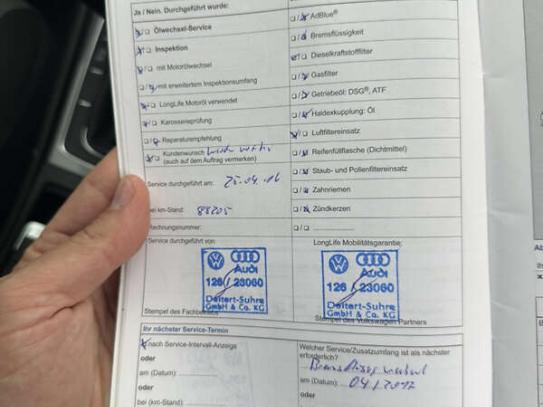 Ja / Nein. Durchgeführt wurde:
Ölwechsel-Service
Inspektion
mit Motorölwechsel
mit erweitertem Inspektionsumfang
LongLife Motoröl verwendet
Karosserieprüfung
Reparaturempfehlung
Kundenwunsch
(auch auf dem Auftrag vermerken)
Service durchgeführt am: 25.04.16
bei km-Stand: 88205
Rechnungsnummer:
Service durchgeführt von:
Audi
126 / 23060
Deitert-Suhre
GmbH & Co. KG
Stempel des Fachbetriebs
AdBlue®
Bremsflüssigkeit
Dieselkraftstofffilter
Gasfilter
Getriebeöl: DSG®, ATF
Haldexkupplung: Öl
Luftfiltereinsatz
Reifenfüllflasche (Dichtmittel)
Staub- und Pollenfiltereinsatz
Zahnriemen
Zündkerzen
LongLife Mobilitätsgarantie:
Audi
126 / 23060
Deitert-Suhre
GmbH & Co. KG
Stempel des Volkswagen Partners
Ihr nächster Service-Termin
nach Service-Intervall-Anzeige
oder
am (Datum):
oder
bei (km-Stand):
Welcher Service/Zusatzumfang ist als nächster
erforderlich?
am (Datum): 04/2017
oder